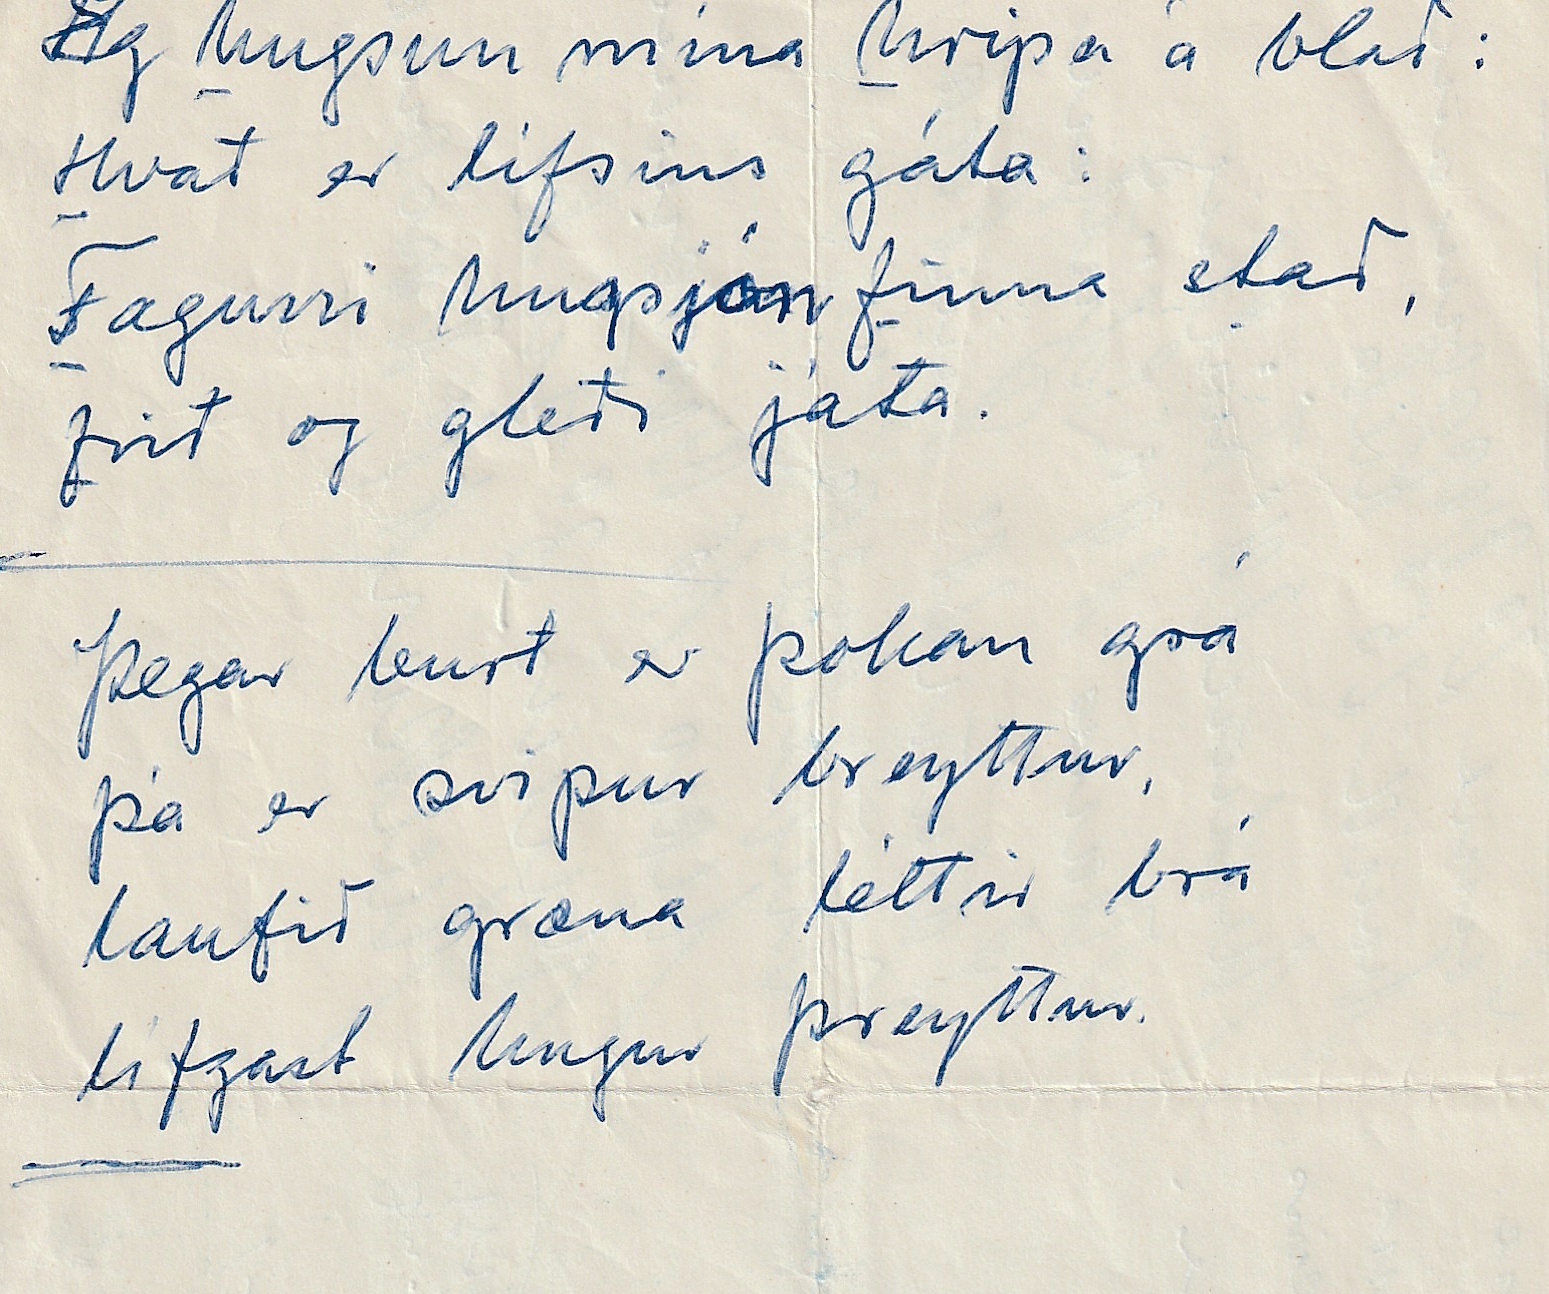 Ég hugsun mína hripa á blað:
Hvað er lífsins gáta:
Fagurri hugsjón finna stað,
frið og gleði játa.
Þegar burt er þokan grá
þá er svipur breyttur,
laufið græna léttir brá
lífgast hugur þreyttur.